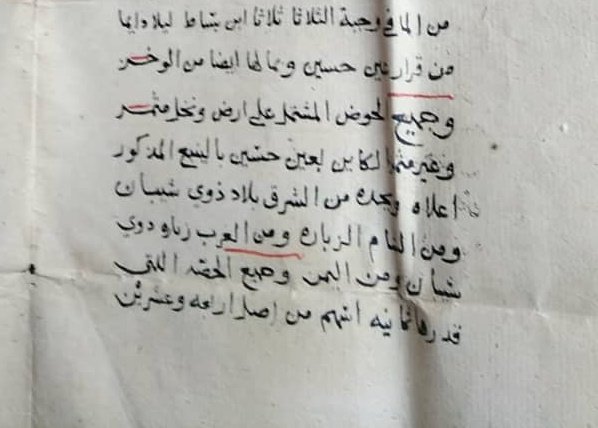 من الما في وجبة الثلاثا ثلاثا ابن بساط ليلا دايما
من قرار عين حسين وما لها ايضا من الوخر
وجميع الحوض المشتمل على ارض ونخل مثمر
وغير مثمر الكاين بعين حسين بالينبع المذكور
اعلاه ويحده من الشرق بلاد ذوي شيبان
ومن الشام الزباره ومن الغرب زباره ذوي
شيبان ومن اليمن وجميع الحصه اللتي
قدرها ثمانيه اسهم من اصل اربعه وعشرين